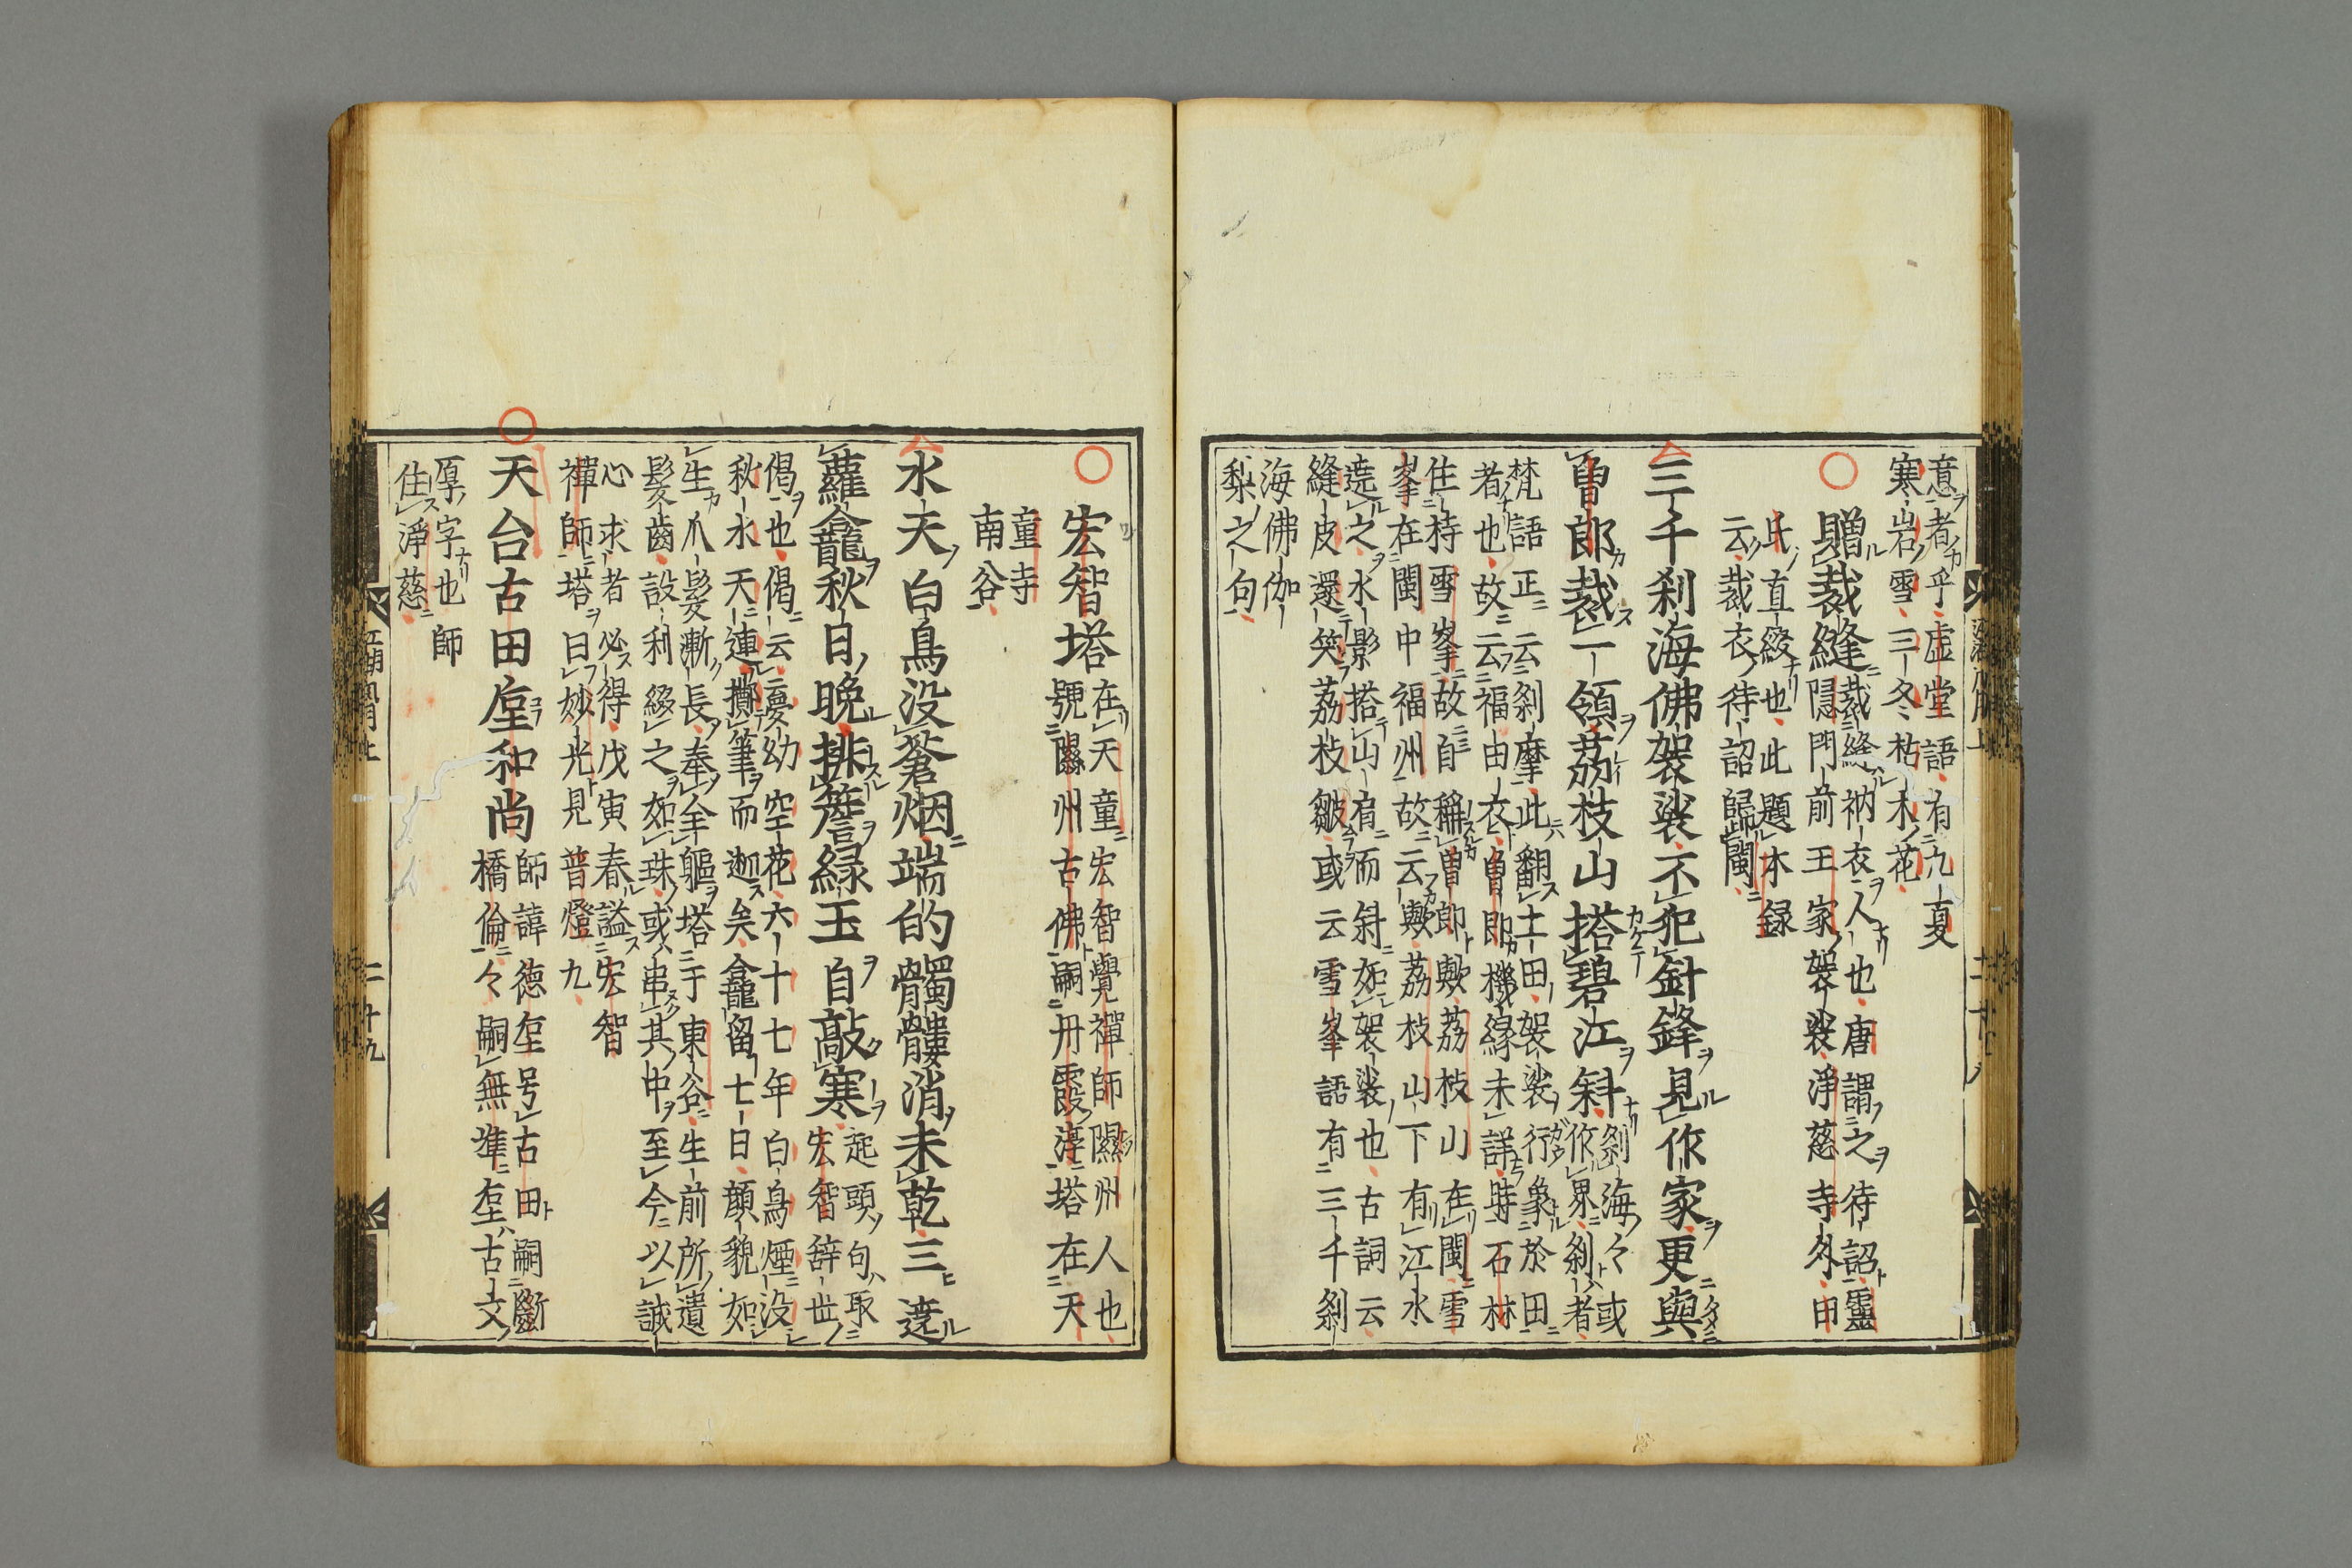 意者乎虚堂語有九夏
寒岩雪三冬枯木花
贈裁縫
裁縫衲衣人也唐謂之待詔靈
隠門前王家袈裟淨慈寺外田
氏直綴也此題本録
云裁衣待詔歸閩
三千刹海佛袈裟不犯針鋒見作家更與
曽郎裁一領荔枝山搭碧江斜
刹海々或
作界刹者
梵語正云刹摩此翻土田袈裟行象於田
者也故云福由衣曽郎機緣未詳時石林
住持雪峯故自稱曽郎歟荔枝山在閩雪
峯在閩中福州故云歟荔枝山下有江水
遶之水影搭山肩而斜如袈裟也古詞云
縫皮還笑荔枝皺或云雪峯語有三千刹
海佛伽
梨之句
宏智塔
在天童宏智覺禪師隰州人也
號隰州古佛嗣丹霞淳塔在天
童寺
南谷
水夫白鳥没蒼烟端的髑髏消未乾三遶
蘿龕秋日晩排簷緑玉自敲寒
起頭句取
宏智辞世
偈也偈云夢幼空花六十七年白鳥煙没
秋水天連擲筆而逝矣龕留七日顔貌如
生爪髮漸長奉全軀塔于東谷生前所遺
髮齒設利綴之如珠或串其中至今以誠
心求者必得戊寅春謚宏智
禪師塔曰妙光見普燈九
天台古田垕和尚
師諱德垕号古田嗣斷
橋倫々嗣無準垕古文
厚字也師
住淨慈
二十九